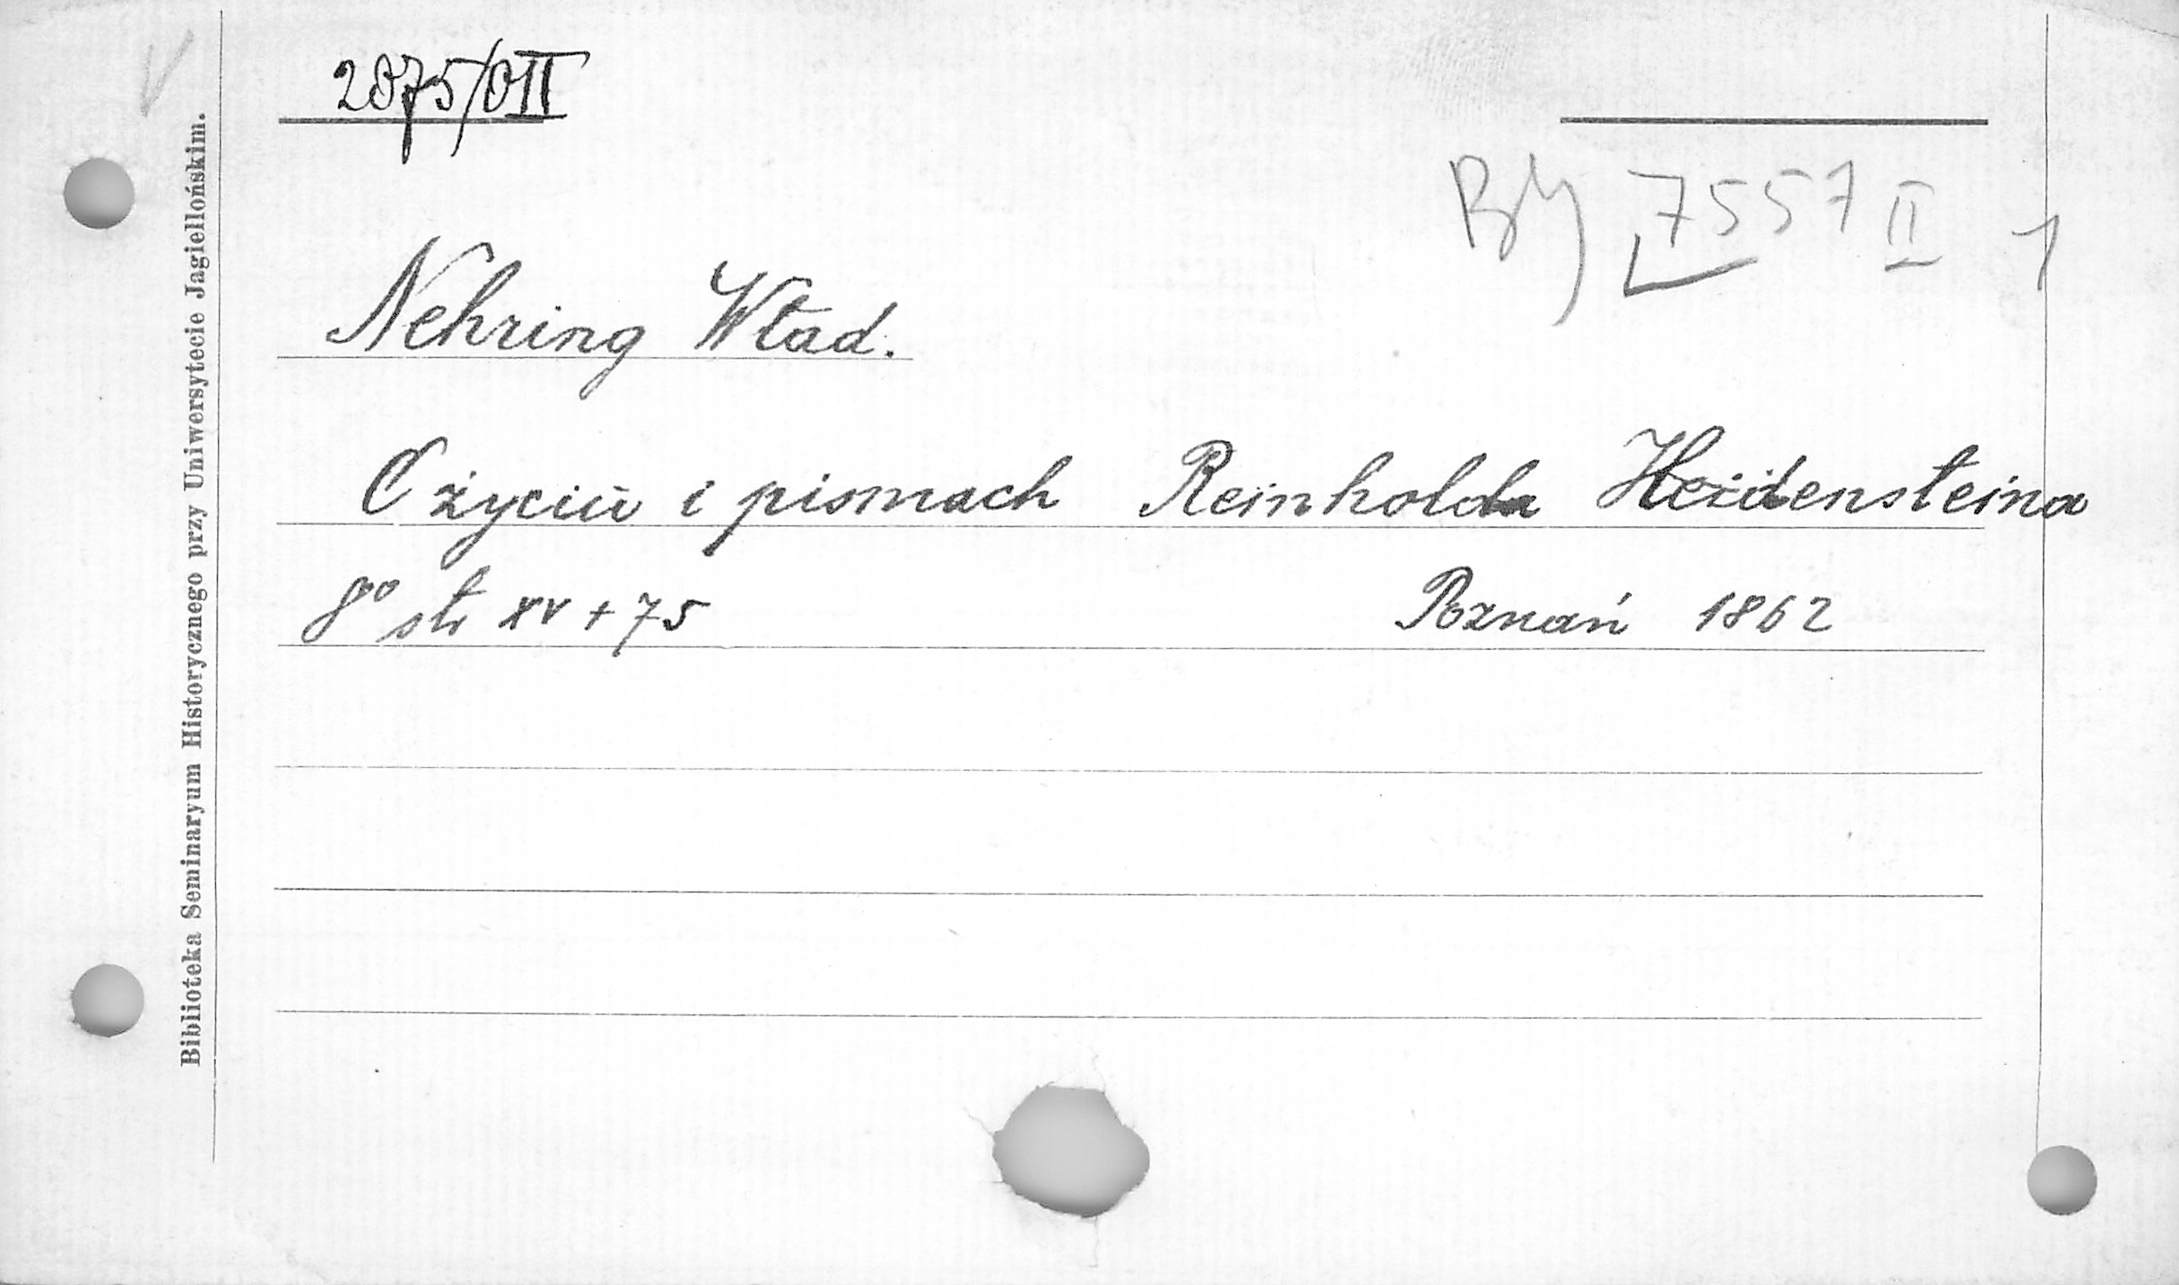 2875/0II
7557 II 1
Nehring Wład.
O życiu i pismach Reinholda Heidensteina
8° str XV + 75 Poznań 1862
Biblioteka Seminaryum Historycznego przy Uniwersytecie Jagiellońskim.